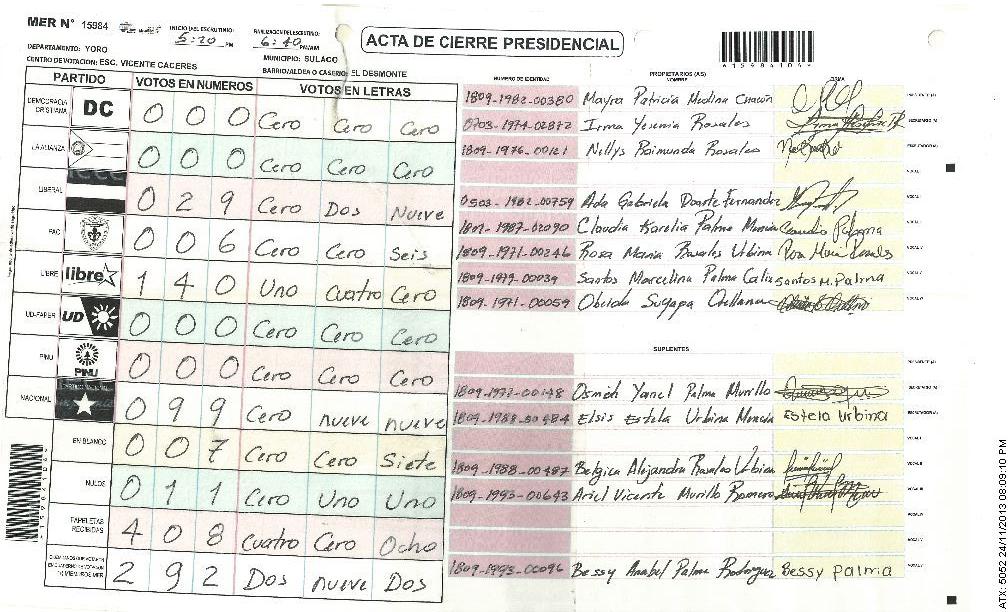 MER N° 15984
INICIO DEL ESCRUTINIO: 5:20 PM
FINALIZACION ESCRUTINIO: 6:40 PM/AM
ACTA DE CIERRE PRESIDENCIAL
DEPARTAMENTO: YORO
MUNICIPIO: SULACO
CENTRO DE VOTACION: ESC. VICENTE CACERES
BARRIO/ALDEA O CASERIO: EL DESMONTE
PARTIDO VOTOS EN NUMEROS VOTOS EN LETRAS
DEMOCRACIA CRISTIANA DC 0 0 0 Cero Cero Cero
LA ALIANZA 0 0 0 Cero Cero Cero
LIBERAL 0 2 9 Cero Dos Nueve
PAC 0 0 6 Cero Cero Seis
LIBRE libre 1 4 0 Uno Cuatro Cero
UD-FAPER UD 0 0 0 Cero Cero Cero
PINU PINU 0 0 0 Cero Cero Cero
NACIONAL 0 9 9 Cero nueve nueve
EN BLANCO 0 0 7 Cero Cero Siete
NULOS 0 1 1 Cero Uno Uno
PAPELETAS RECIBIDAS 4 0 8 Cuatro Cero Ocho
2 9 2 Dos nueve Dos
NUMERO DE IDENTIDAD
PROPIETARIOS (AS)
NOMBRE
FIRMA
1809-1982-00380 Mayra Patricia Medina Chacón PRESIDENTE (A)
0703-1974-02872 Irma Yesenia Rosales SECRETARIO (A)
1809-1976-00121 Nillys Raimunda Rosales ESCRUTADOR (A)
VOCAL I
0503-1982-00759 Ada Gabriela Duarte Fernandez
1807-1987-02090 Claudia Karelia Palma Murcia Claudia Palma
1809-1971-00246 Rosa Maria Rosales Urbina Rosa Maria Rosales
1809-1979-00039 Santos Marcelina Palma Calix Santos M. Palma
1809-1971-00059 Obeida Suyapa Orellana
SUPLENTES
PRESIDENTE (A)
1809-1972-00148 Osmeh Yanel Palma Murillo SECRETARIO (A)
1809-1988-00484 Elsis Estela Urbina Murcia Estela Urbina ESCRUTADOR (A)
1809-1988-00487 Belgica Alejandra Rosales Urbina
1809-1993-00643 Ariel Vicente Murillo Romero
1809-1993-00096 Bessy Anabel Palma Rodriguez Bessy Palma
ATX: 5052 24/11/2013 08:09:10 PM